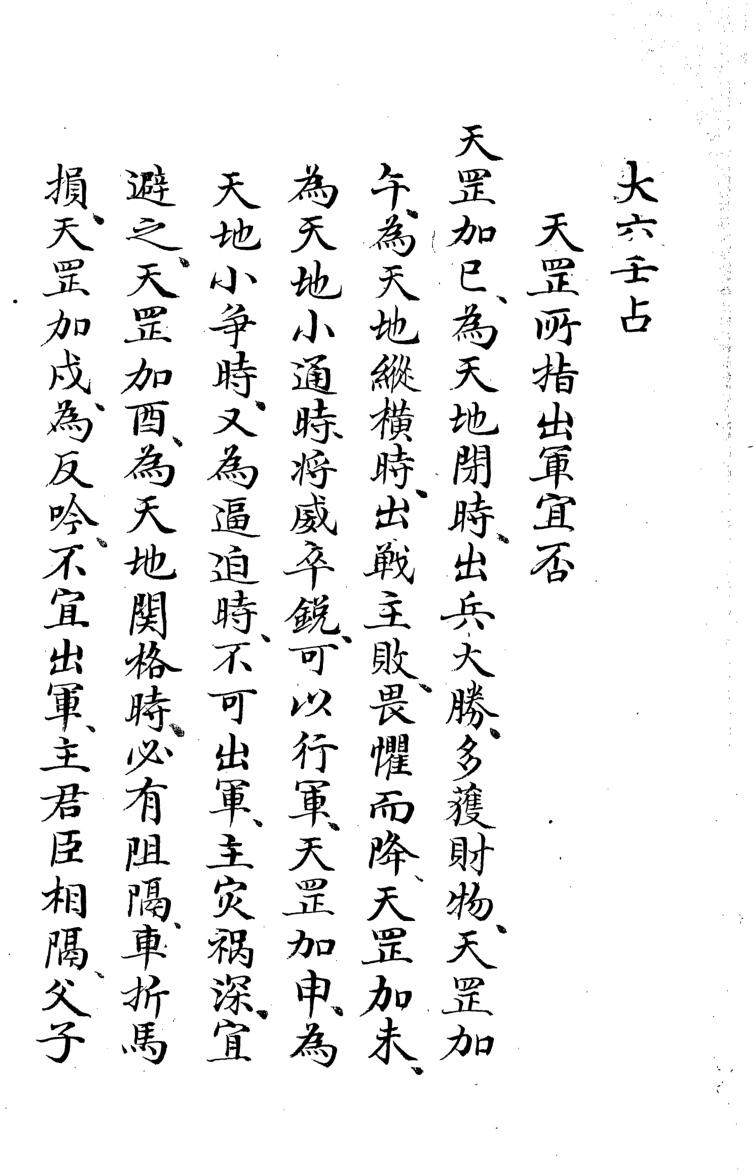 大六壬占
天罡所指出軍宜否
天罡加巳、為天地閉時、出兵大勝、多獲財物、天罡加
午、為天地縱橫時、出戰主敗、畏懼而降、天罡加未、
為天地小通時、将威卒鋭、可以行軍、天罡加申、為
天地小争時、又為逼迫時、不可出軍、主灾祸深、宜
避之、天罡加酉、為天地関格時、必有阻隔、車折馬
損、天罡加戌、為反吟、不宜出軍、主君臣相隔、父子